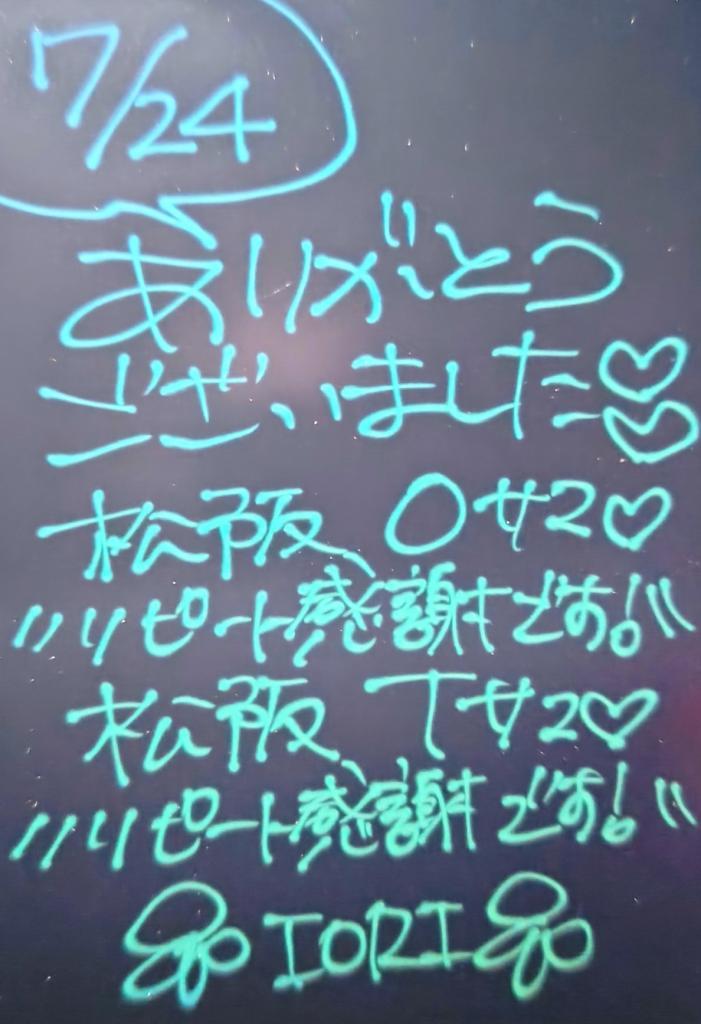 7/24
ありがとう
ございました♡♡
松阪、Oサマ♡
"リピート感謝です!"
松阪、Tサマ♡
"リピート感謝です!"
IORI